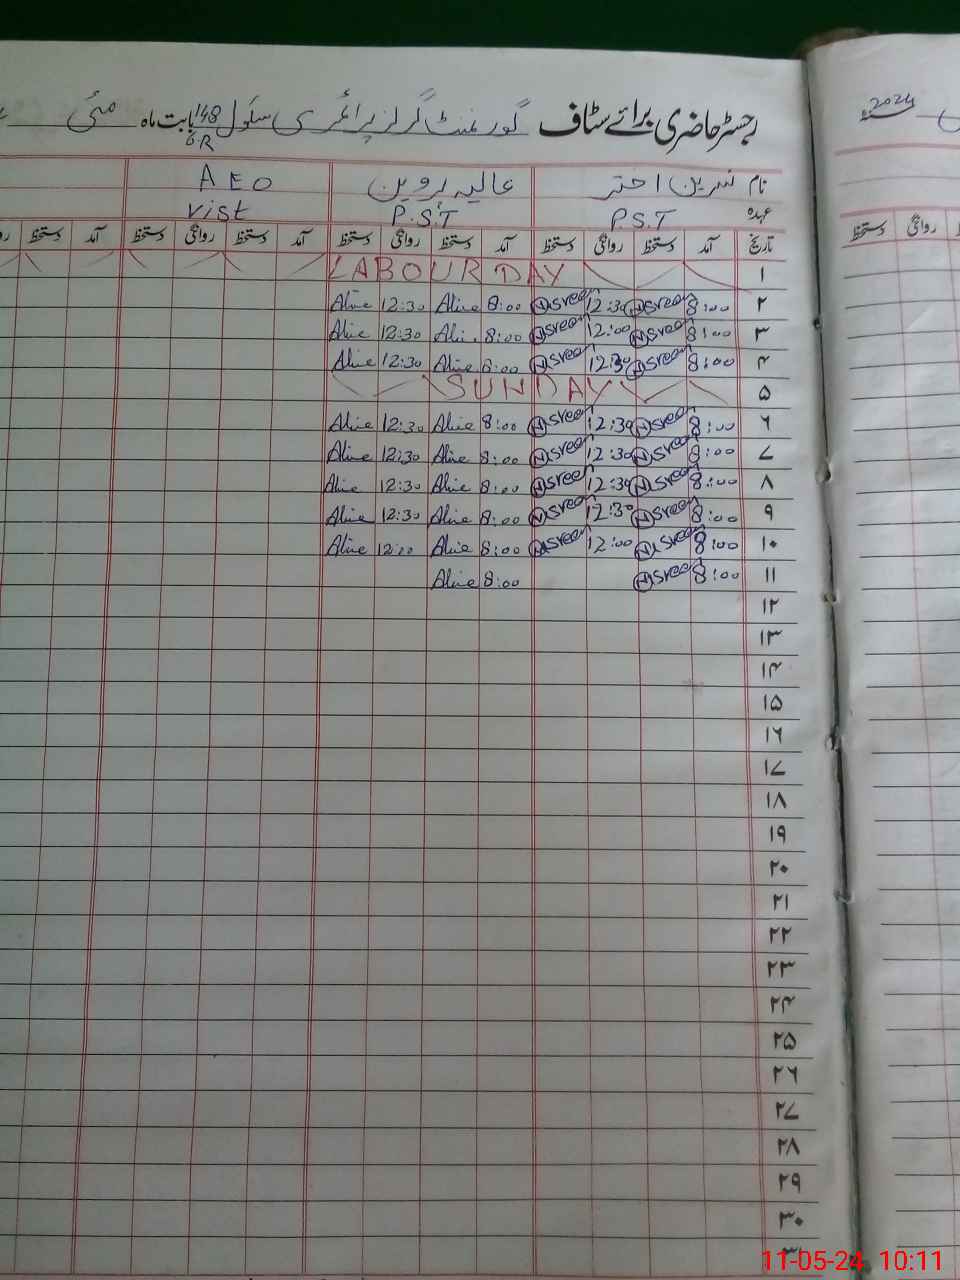 رجسٹر حاضری برائے سٹاف گورنمنٹ گرلز پرائمری سکول 148 بابت ماہ مئی
G.R
2024
نام نسرین اختر عالیہ پروین A E O
عہدہ P.S.T P.S.T Vist
تاریخ آمد دستخط روانگی دستخط آمد دستخط روانگی دستخط آمد دستخط روانگی دستخط آمد دستخط روانگی
دستخط روانگی
۱ LABOUR DAY
۲ 8:00 Nasreen 12:30 Nasreen 8:00 Aline 12:30 Aline
۳ 8:00 Nasreen 12:00 Nasreen 8:00 Alin 12:30 Aline
۴ 8:00 Nasreen 12:30 Nasreen 8:00 Aline 12:30 Aline
۵ SUNDAY
۶ 8:00 Nasreen 12:30 Nasreen 8:00 Aline 12:30 Aline
۷ 8:00 Nasreen 12:30 Nasreen 8:00 Aline 12:30 Aline
۸ 8:00 Nasreen 12:30 Nasreen 8:00 Aline 12:30 Aline
۹ 8:00 Nasreen 12:30 Nasreen 8:00 Aline 12:30 Aline
۱۰ 8:00 Nasreen 12:00 Nasreen 8:00 Aline 12:00 Aline
۱۱ 8:00 Nasreen 8:00 Aline
۱۲
۱۳
۱۴
۱۵
۱۶
۱۷
۱۸
۱۹
۲۰
۲۱
۲۲
۲۳
۲۴
۲۵
۲۶
۲۷
۲۸
۲۹
۳۰
۳۱
11-05-24 10:11